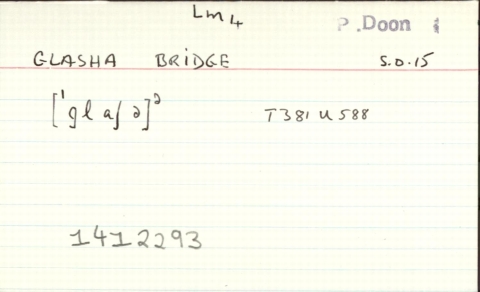 Lm4
P.Doon i
GLASHA BRIDGE S.O.15
['glaʃə]² T381 U588
1412293